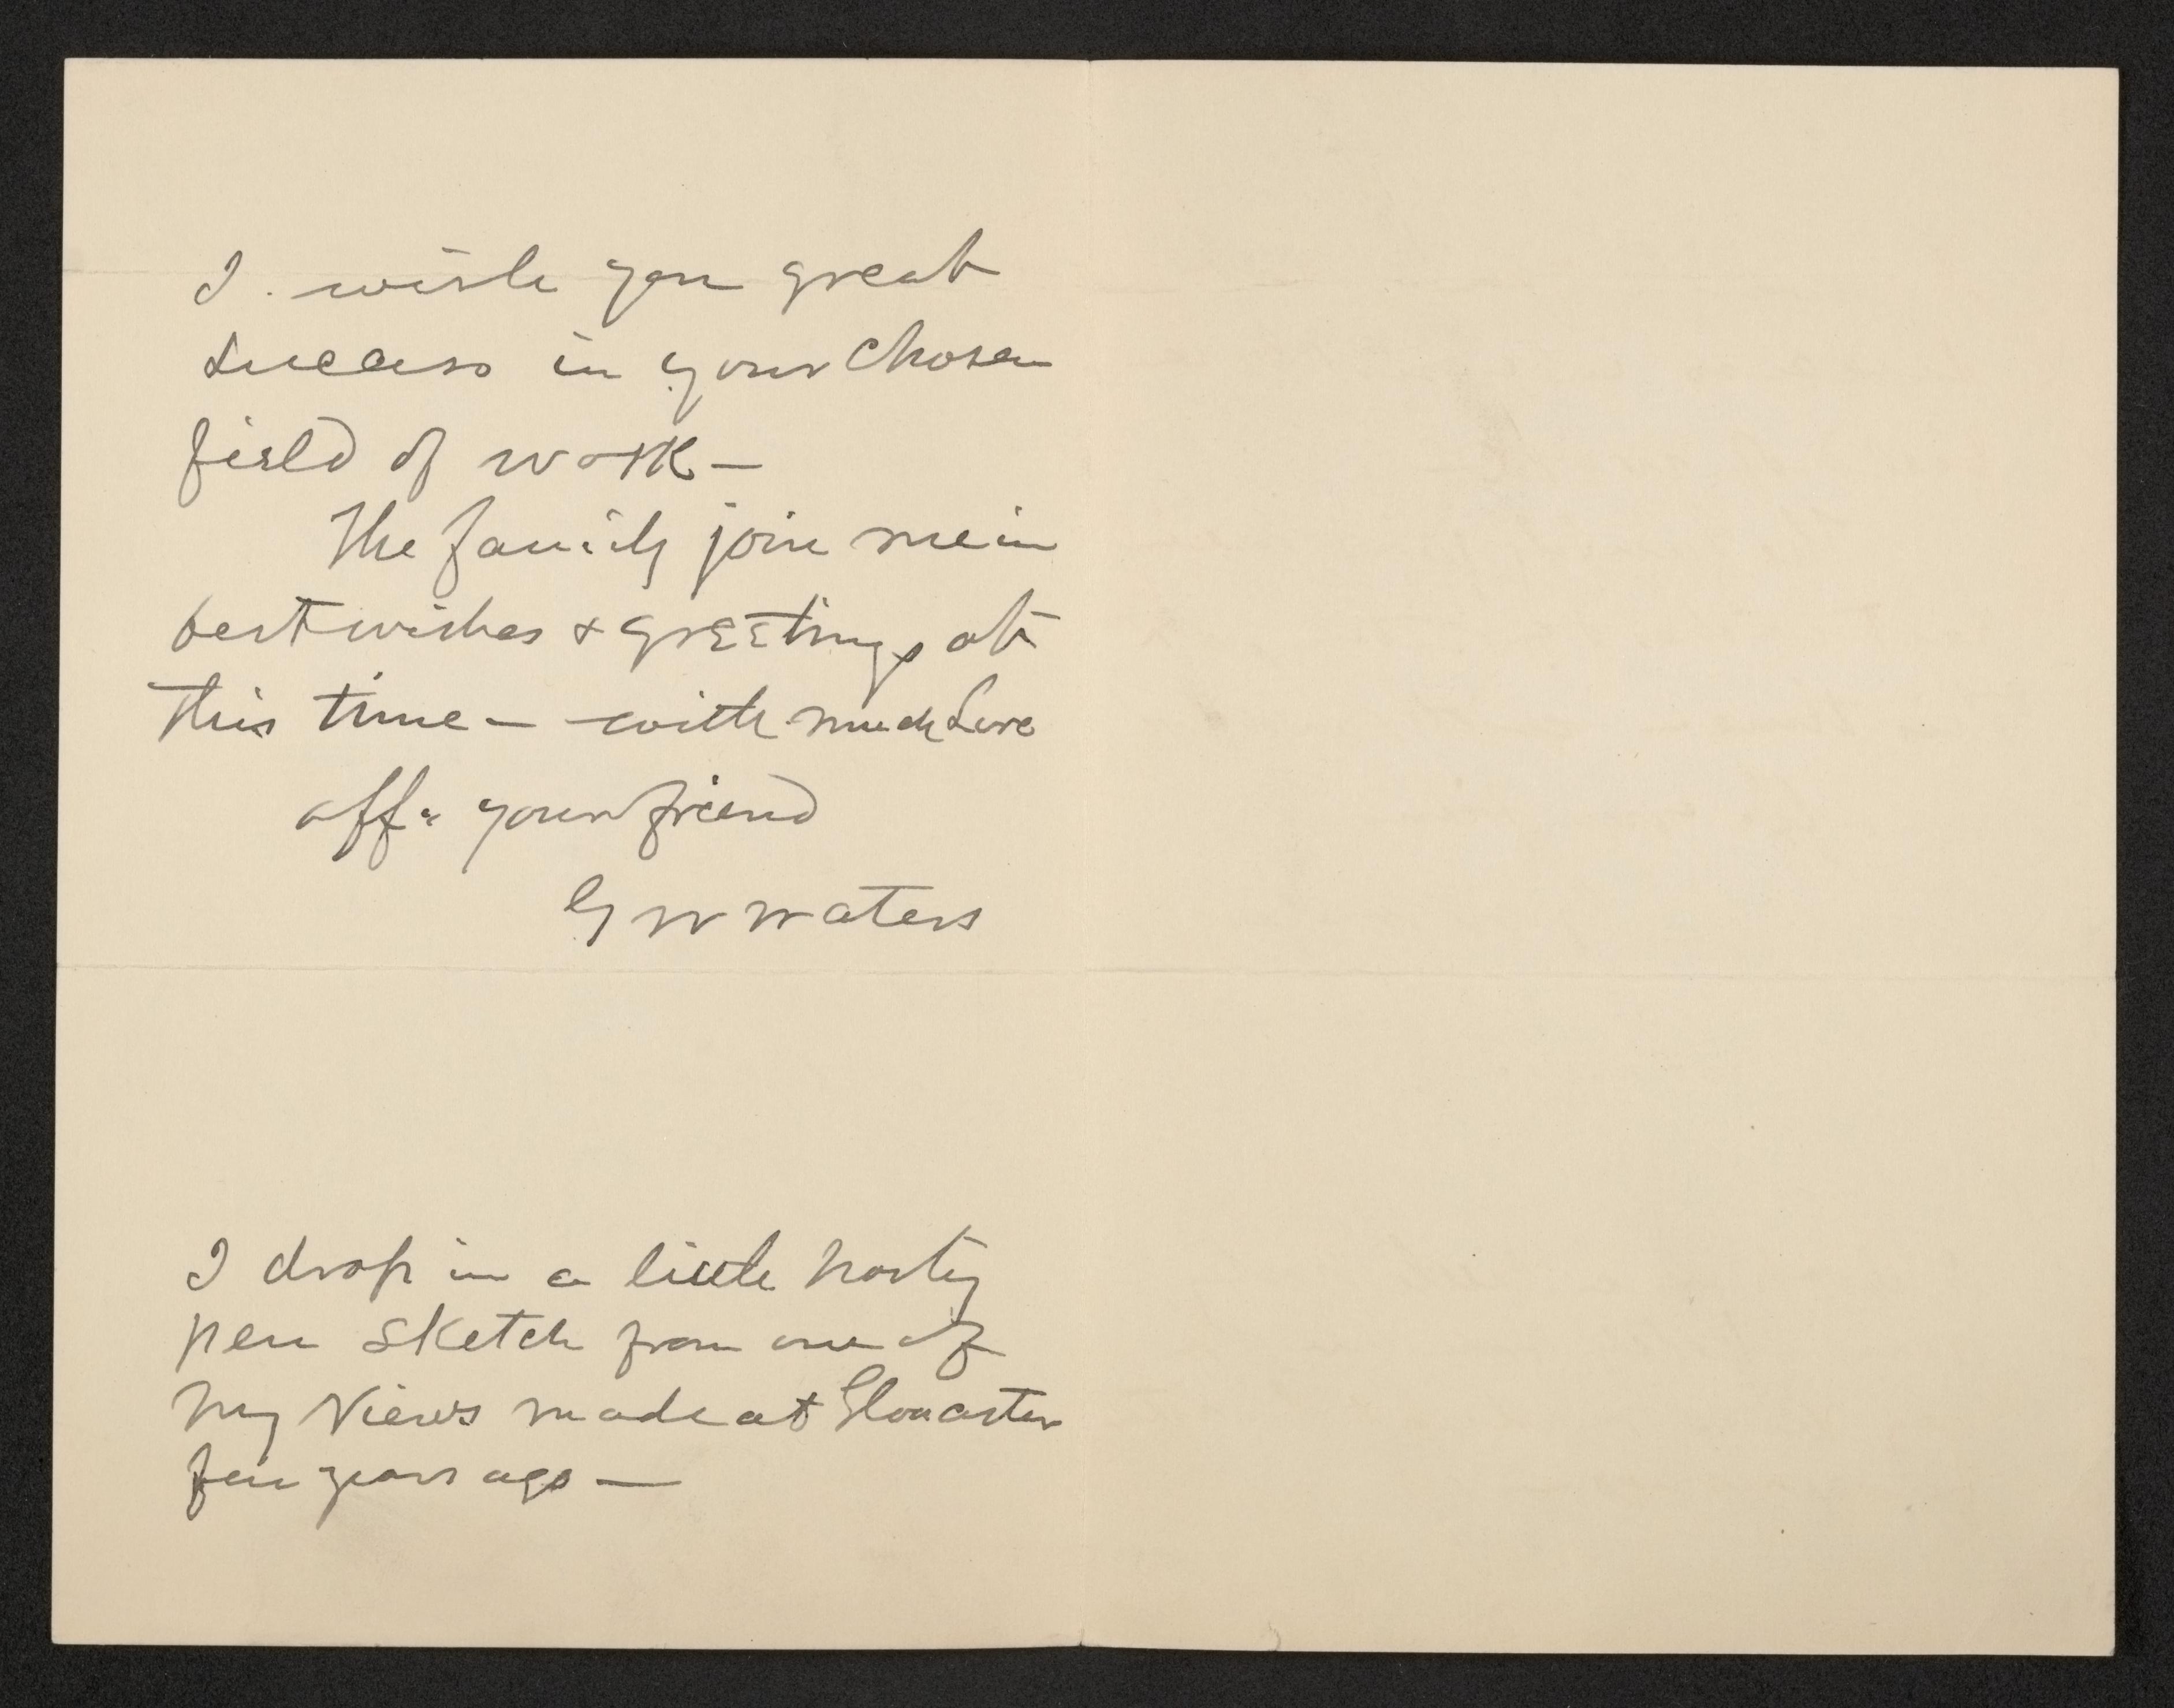 I wish you great
success in your chosen
field of work —
The family join me in
best wishes & greetings at
this time — with much Love
aff. your friend
G W Waters
I drop in a little hasty
pen sketch from one of
my Views made at Gloucaster
few years ago —